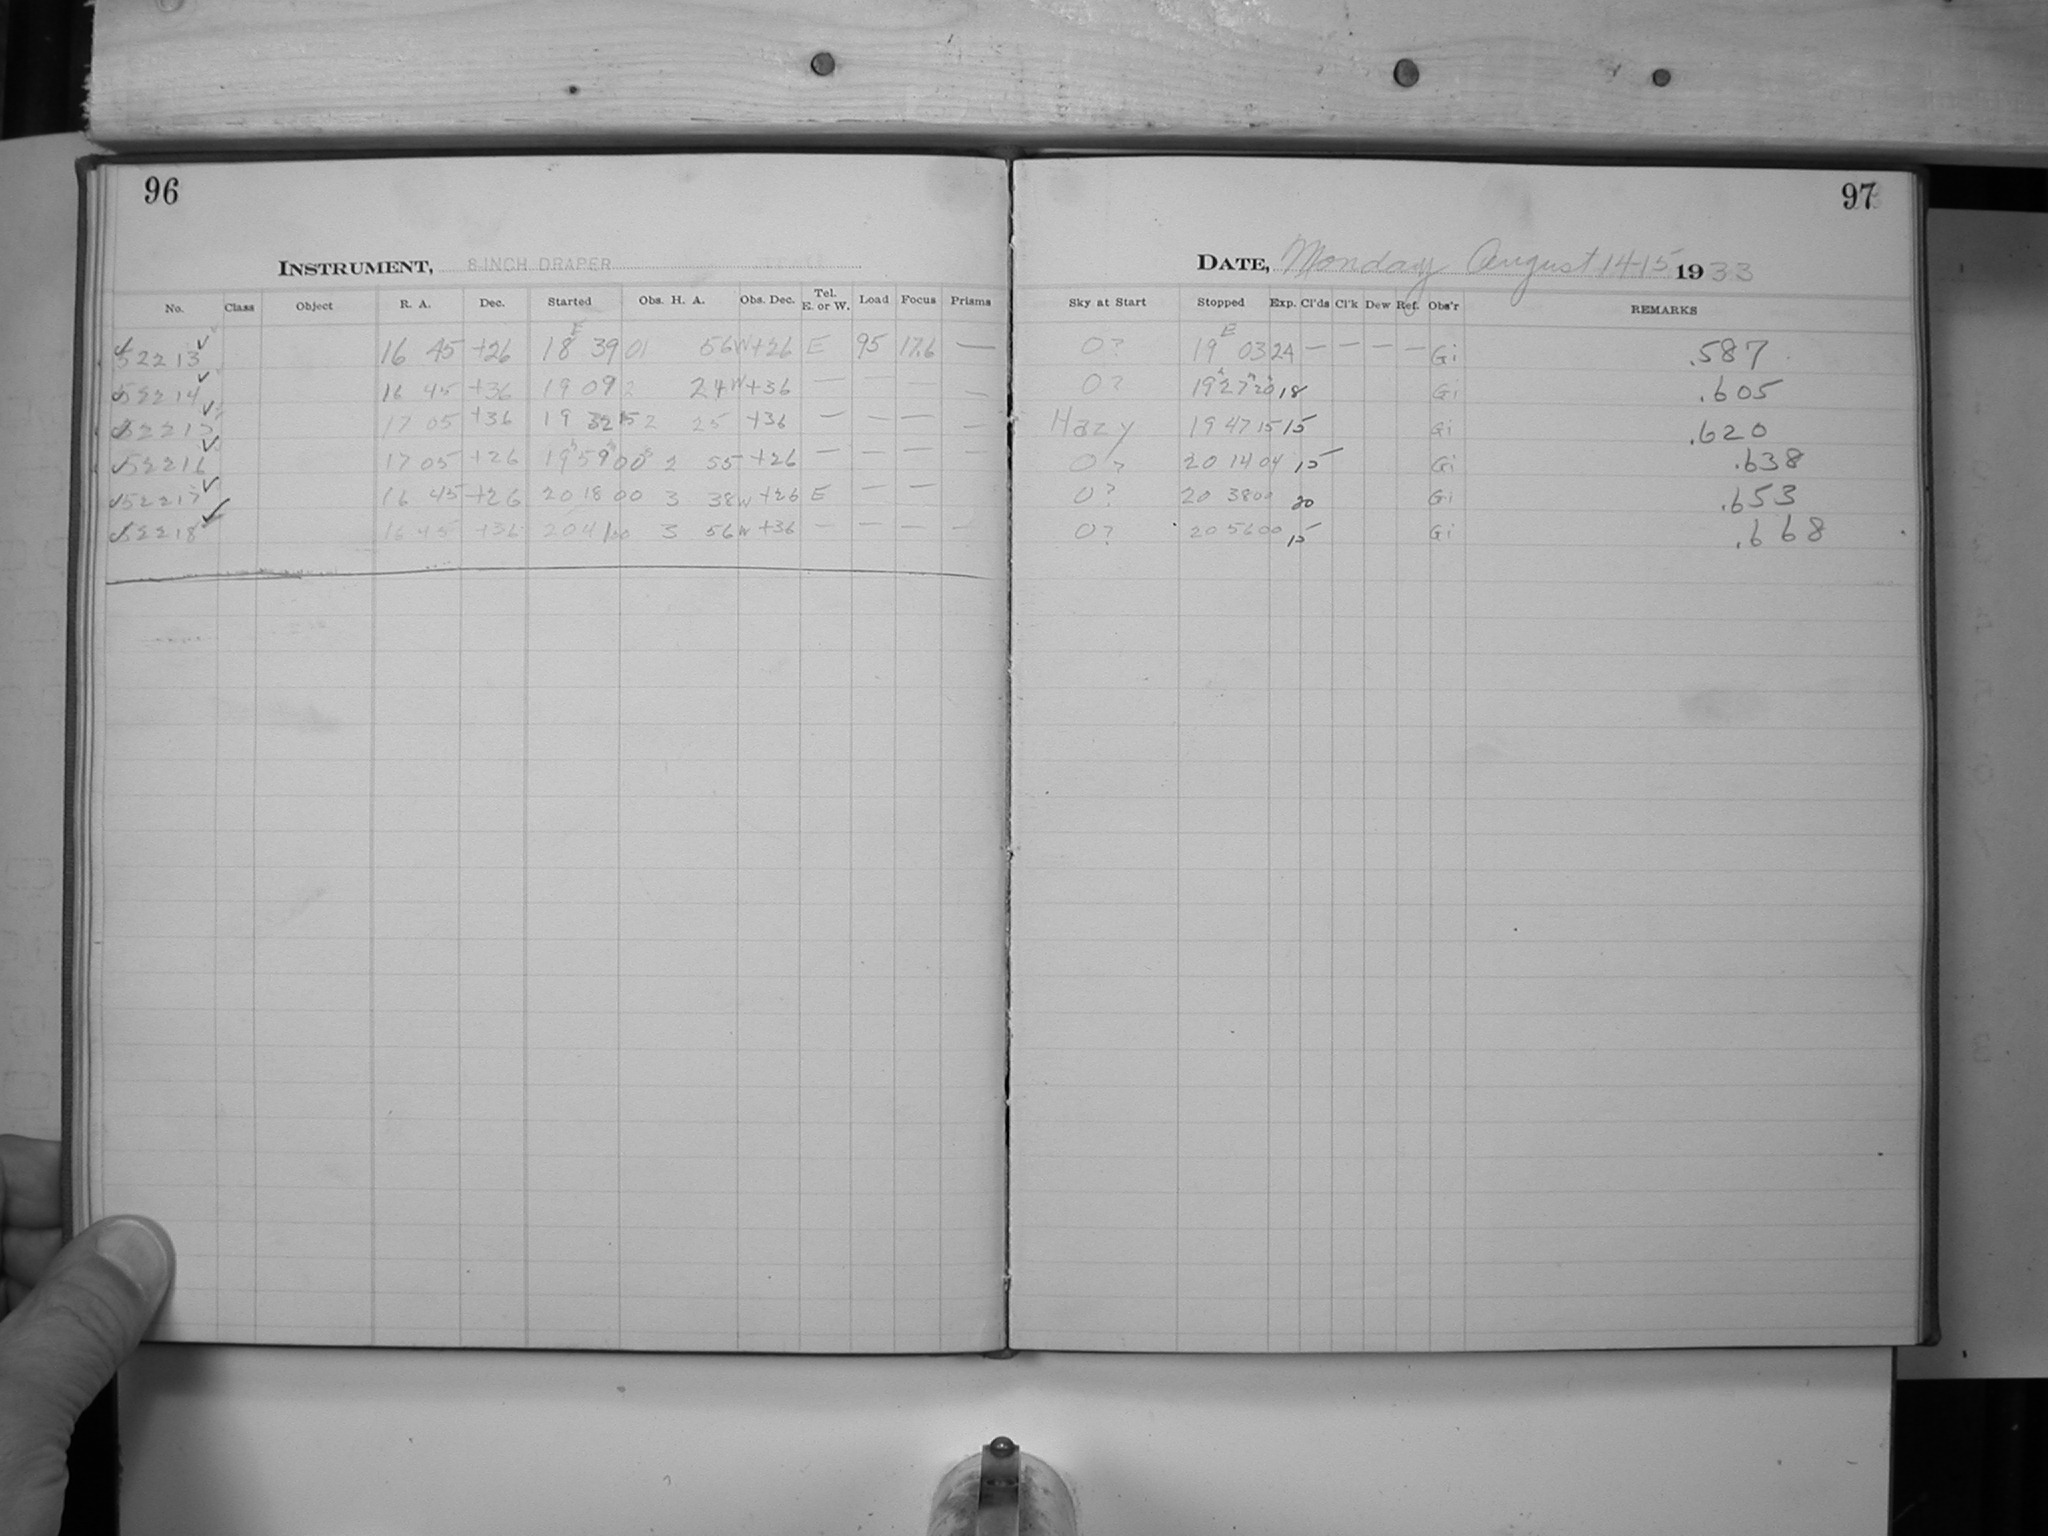 96
INSTRUMENT, 8 INCH DRAPER
No. Class Object R. A. Dec. Started Obs. H. A. Obs. Dec. Tel. E. or W. Load Focus Prisms
52213 16 45 +26 18 39 01 56W +26 E 95 17.6 —
52214 16 45 +36 19 09 2 24W +36 — — —
52215 17 05 +36 19 32 15 2 25 +36 — — — —
52216 17 05 +26 19 59 00 2 55 +26 — — — —
52217 16 45 +26 20 18 00 3 38W +26 E — —
52218 16 45 +36 20 41 00 3 56W +36 — — — —
97
DATE, Monday August 14-15 1933
Sky at Start Stopped Exp. Cl'ds Cl'k Dew Ref. Obs'r REMARKS
0? 19 03 24 — — — — Gi .587
0? 19 27 20 18 Gi .605
Hazy 19 47 15 15 Gi .620
0? 20 14 04 15 Gi .638
0? 20 38 00 20 Gi .653
0? 20 56 00 15 Gi .668